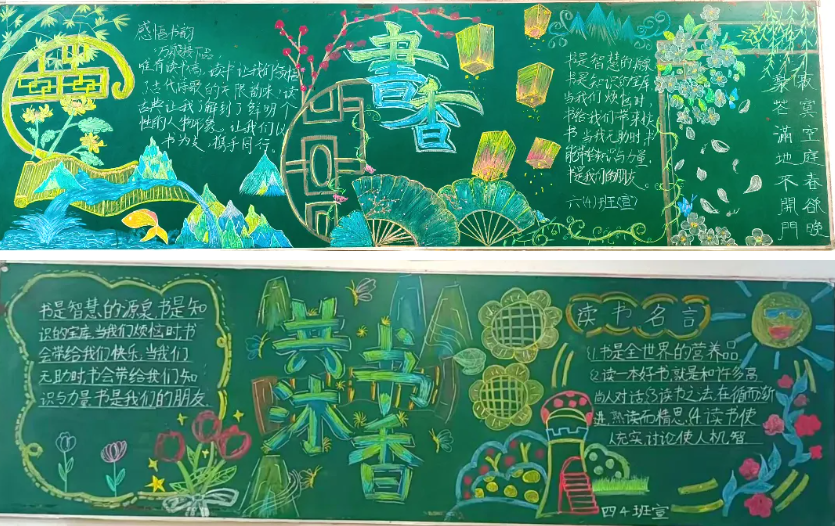 感悟书韵
万般皆下品
唯有读书高，读书让我们领悟
了古代诗歌的无限韵味，读
古典让我了解到了鲜明个
性的人书印象。让我们以
书为友，携手同行。
書香
书是智慧的源泉
书是知识的宝库
当我们烦恼时
书给我们带来快
书当我无助时书
能带知识与力量
书是我们的朋友
六(4)班(宣)
寂寞空庭春欲晚
梨花滿地不開門
书是智慧的源泉.书是知
识的宝库.当我们烦恼时书
会带给我们快乐.当我们
无助时书会带给我们知
识与力量书是我们的朋友
共沐
书香
读书名言
1.书是全世界的营养品
2.读一本好书就是和许多高
尚人对话3.读书之法.在循而渐
进.熟读而精思.4.读书使
人充实讨论使人机智
四4班宣